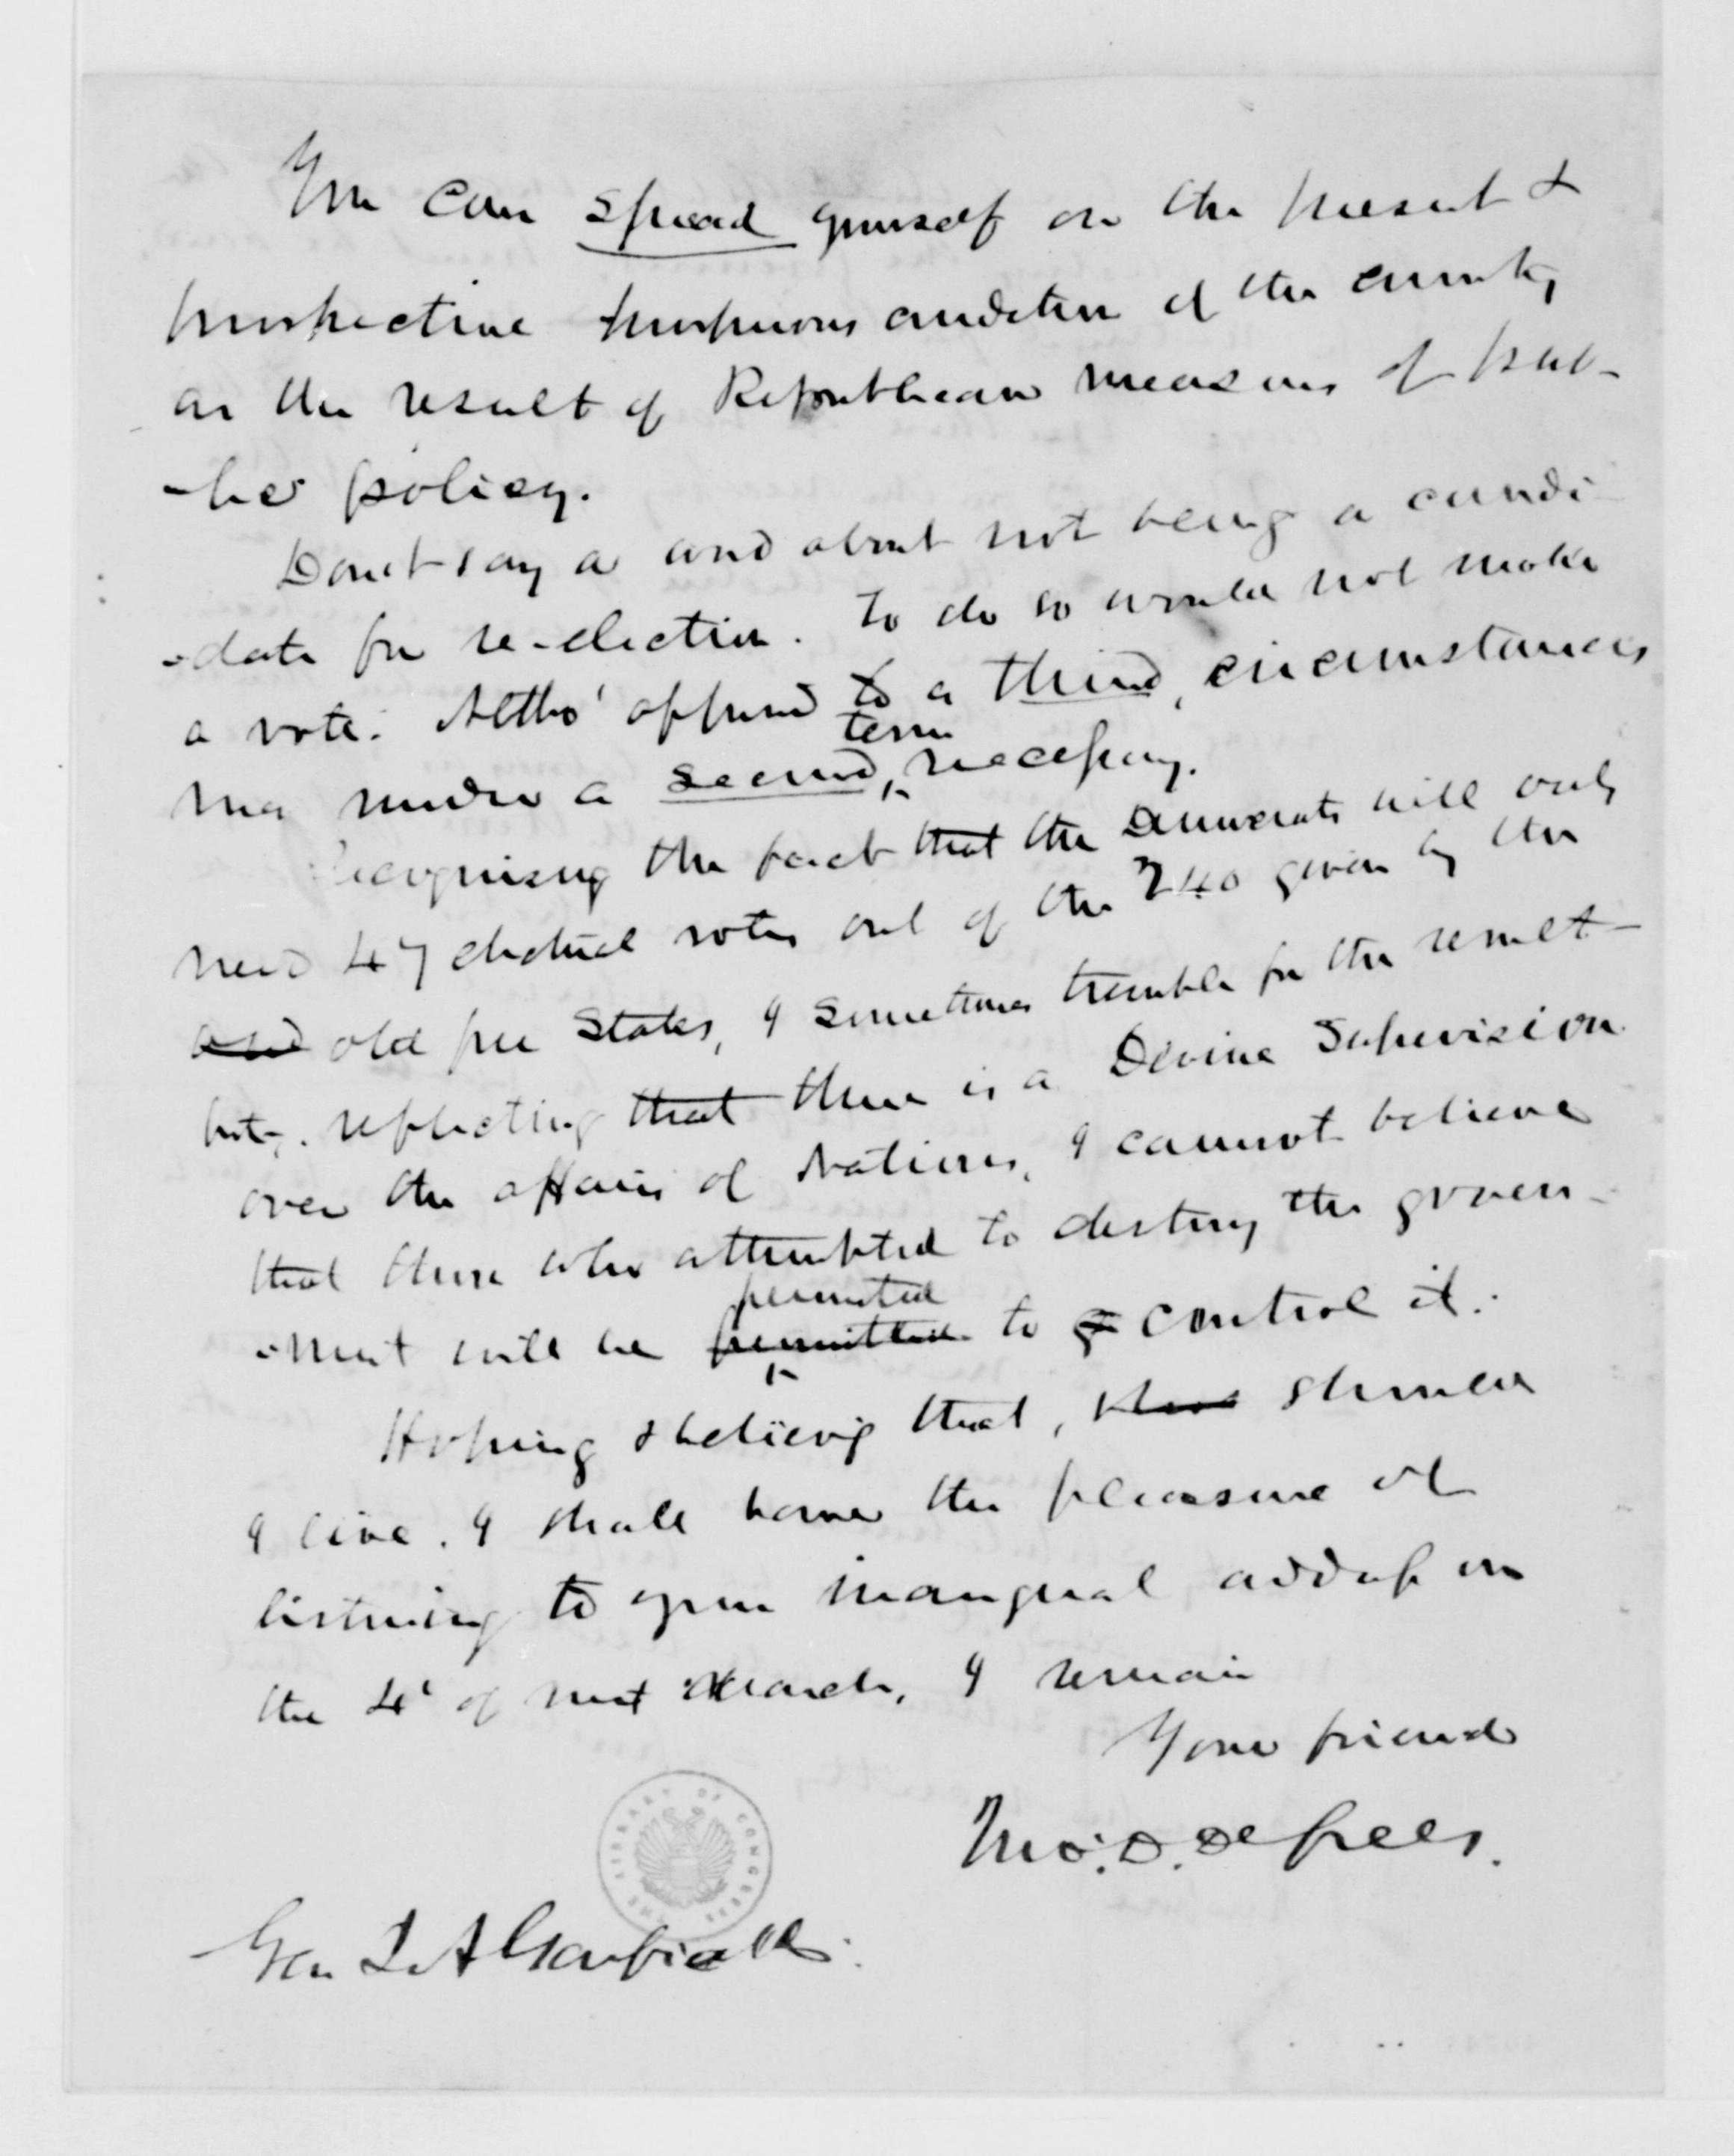 You can spread yourself on the present &
prospective prosperous condition of the country
as the result of Republican measures of pub-
-lic policy.
Don't say a word about not being a candi-
-date for re-election. To do so would not make
a vote. Altho' opposed to a third, circumstances
may render a second term necessary.
Recognising the fact that the Democrats will only
need 47 electoral votes out of the 240 given by the
and old free States, I sometimes tremble for the result-
but, reflecting that there is a Devine Supervision
over the affairs of Nations, I cannot believe
that those who attempted to destroy the govern-
-ment will be permitted permitted to control it.
Hoping & believing that, should
I live, I shall have the pleasure of
listening to your inaugural address on
the 4' of next March, I remain
Your friend
Jno. D. Defrees.
THE LIBRARY OF CONGRESS
Gen J. A Garfield.